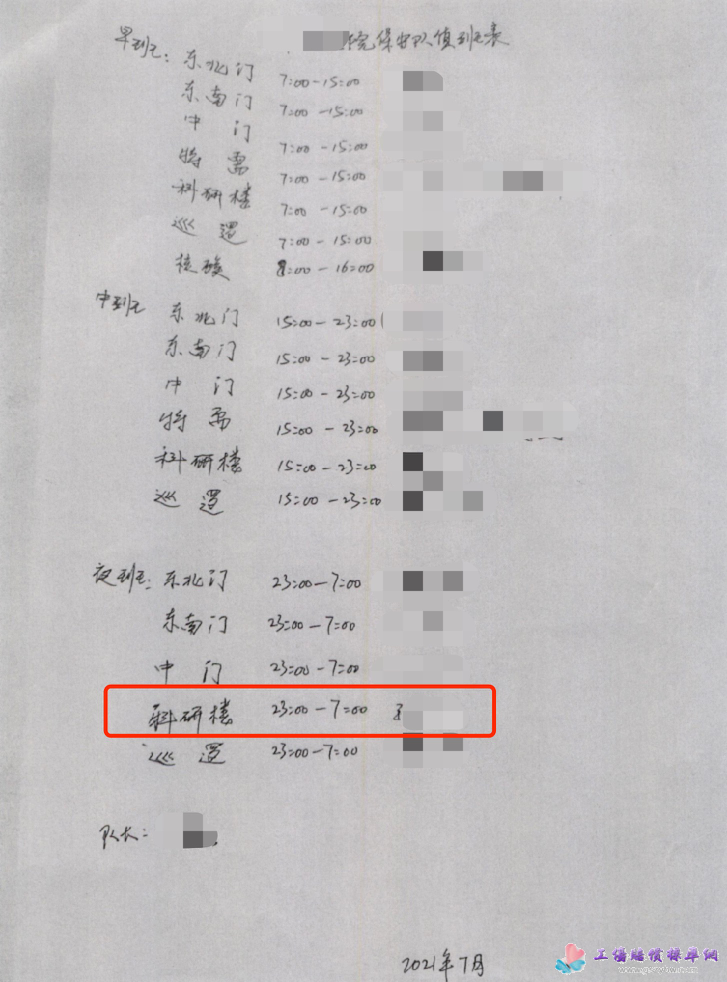 院保安队值班表
早班: 东北门 7:00-15:00
东南门 7:00-15:00
中门 7:00-15:00
特需 7:00-15:00
科研楼 7:00-15:00
巡逻 7:00-15:00
核酸 8:00-16:00
中班 东北门 15:00-23:00
东南门 15:00-23:00
中门 15:00-23:00
特需 15:00-23:00
科研楼 15:00-23:00
巡逻 15:00-23:00
夜班: 东北门 23:00-7:00
东南门 23:00-7:00
中门 23:00-7:00
科研楼 23:00-7:00
巡逻 23:00-7:00
队长:
2021年7月
工伤赔偿标准网